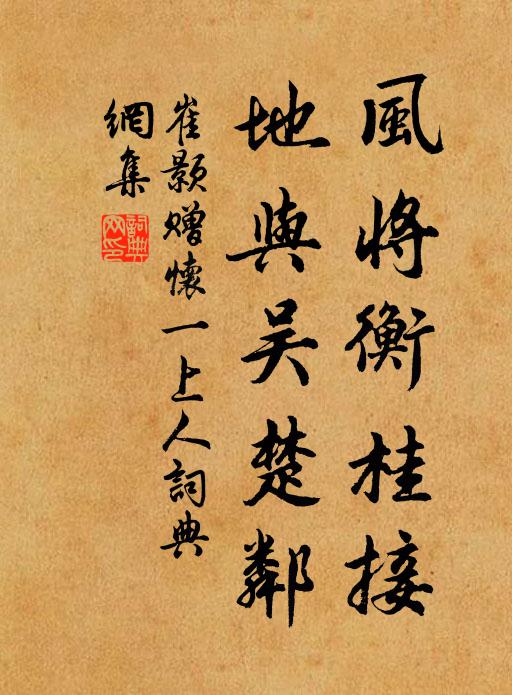 風將衡桂接
地與吴楚鄰
崔顥贈懷一上人詞典
網集
詞典
网印